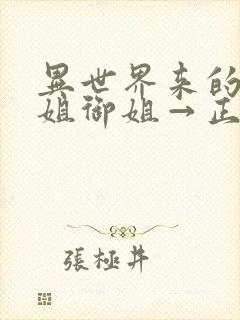 異世界来的
姐御姐→正
張極井